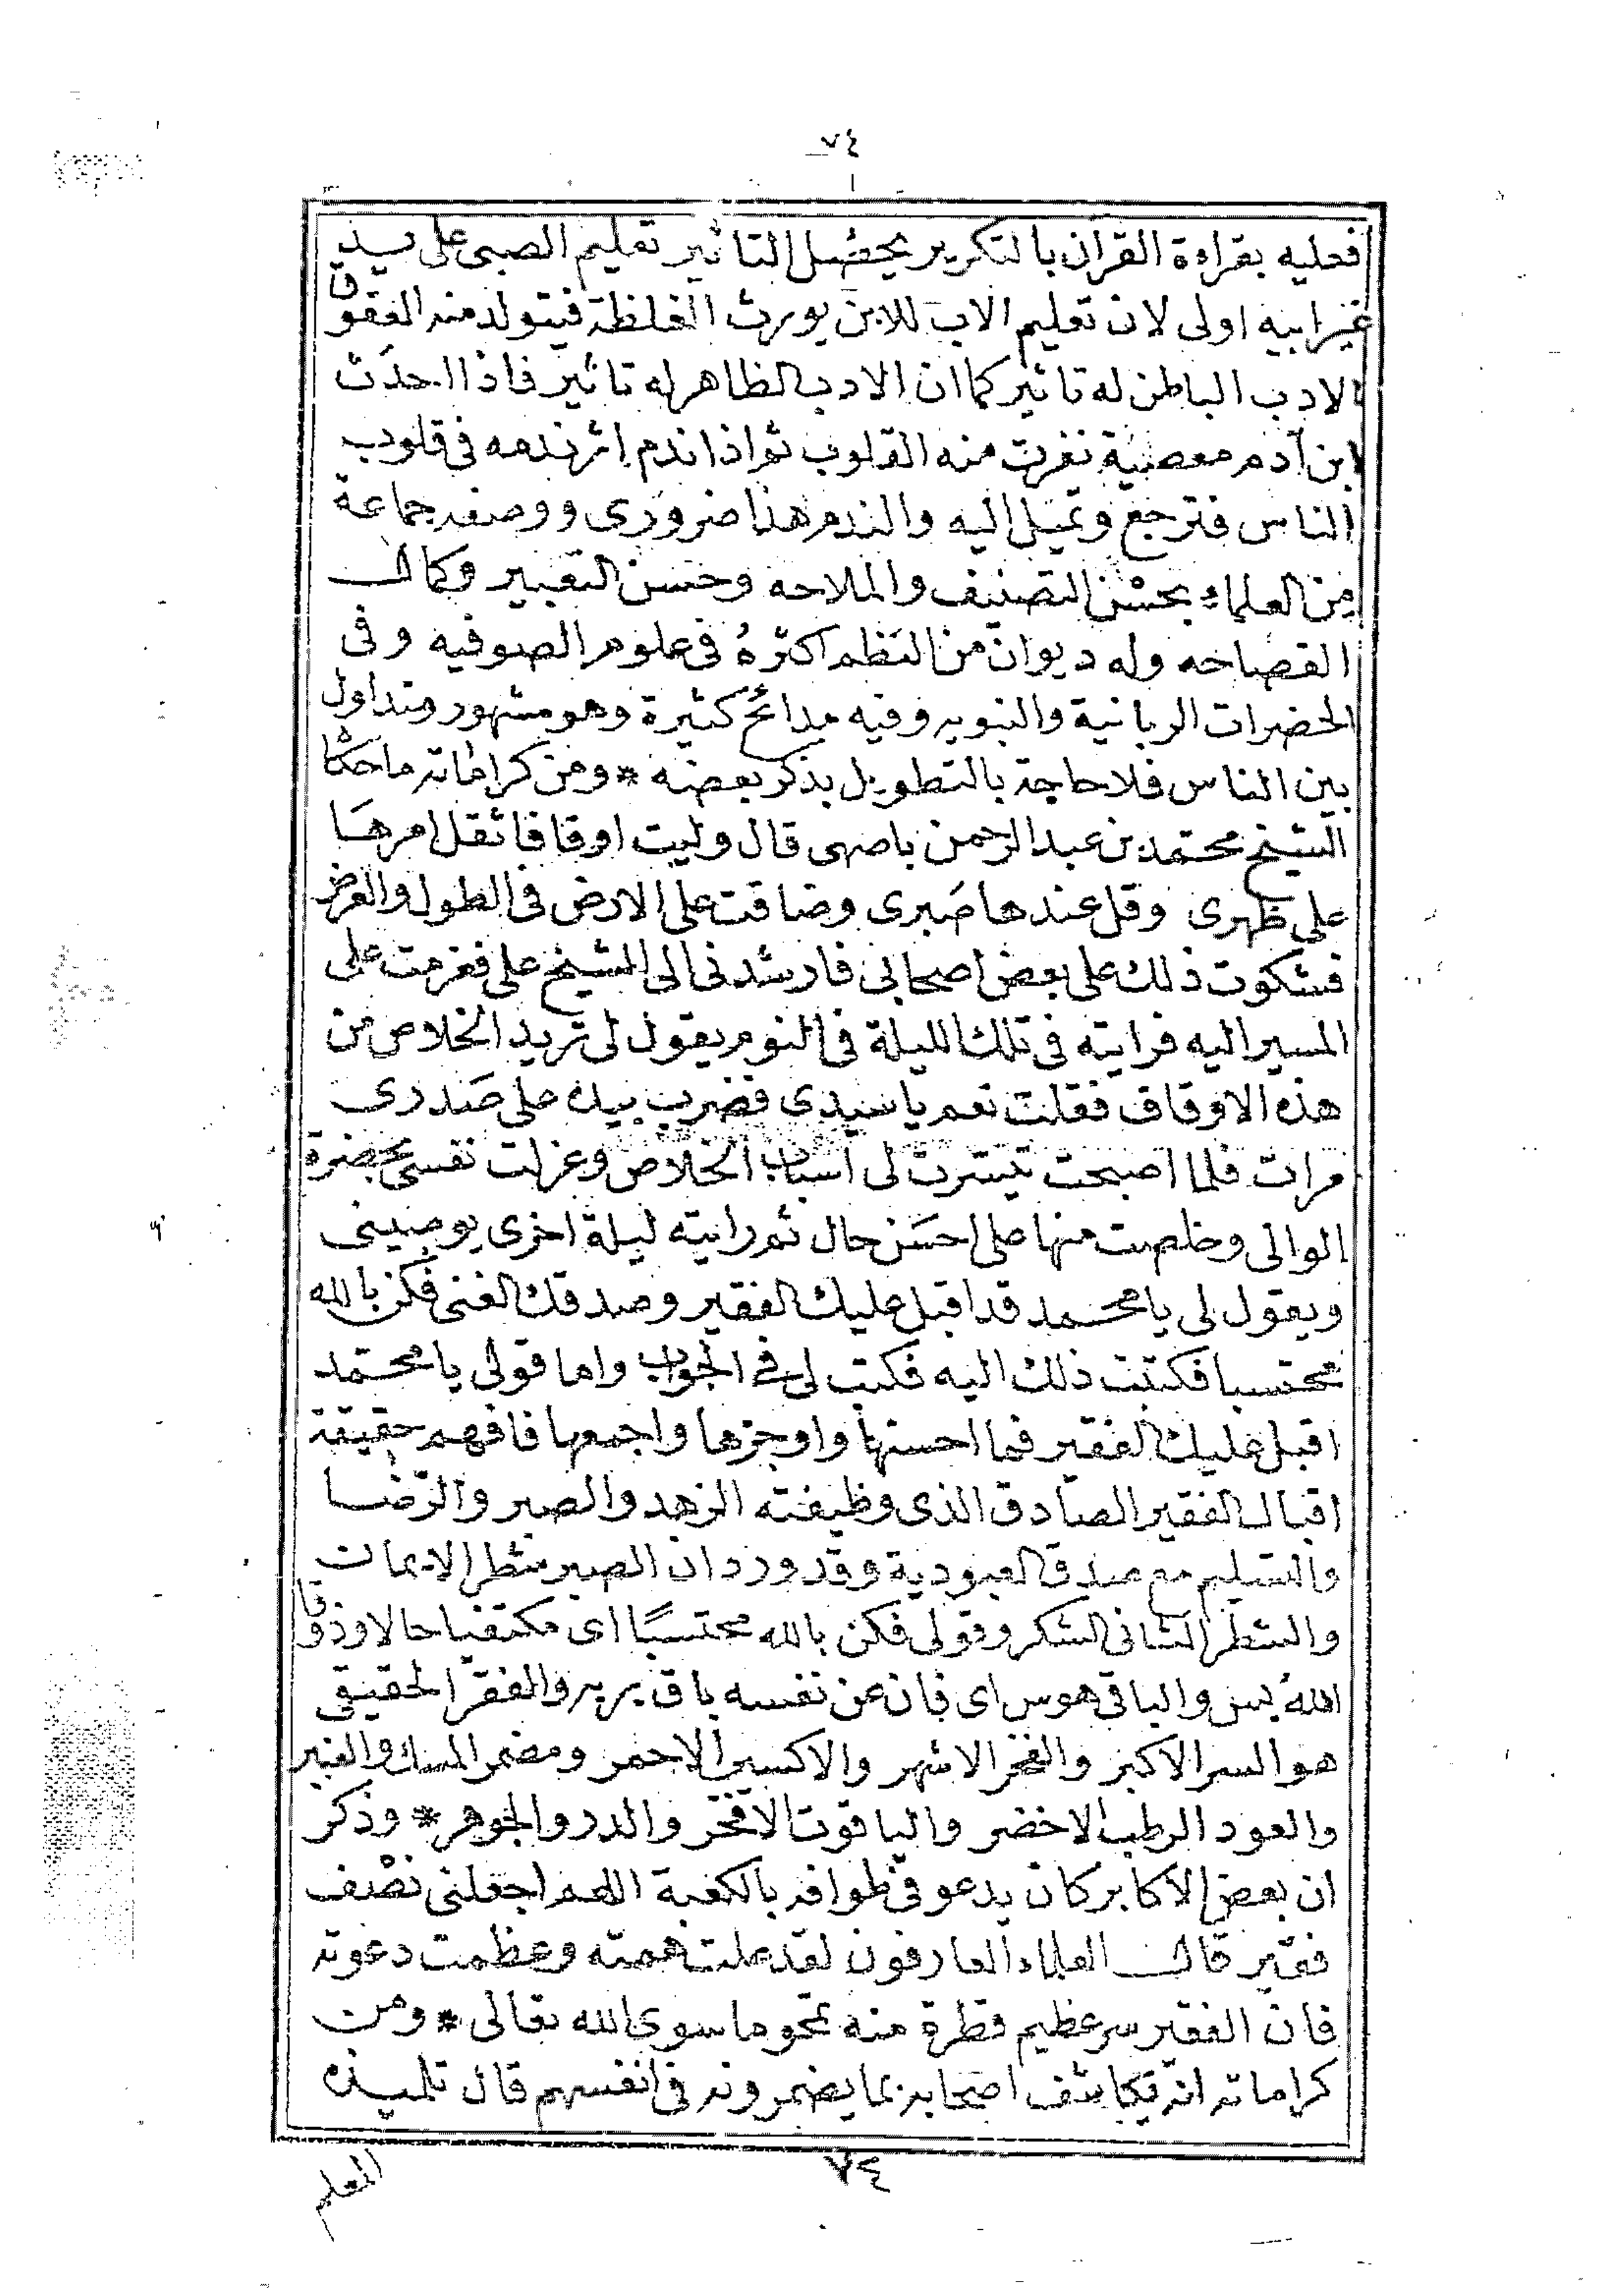 ٧٤
فعليه بقراءة القران بالتكرير يحصل التاثير تعليم الصبى على يد
غير ابيه اولى لان تعليم الاب للابن يورث الغلظة فيتولد منه العقوق
الادب الباطن له تاثير كما ان الادب الظاهر له تاثير فاذا احدث
ابن آدم معصية نفرت منه القلوب ثم اذا ندم اثر ندمه فى قلوب
الناس فترجع وتميل اليه والندم هذا ضرورى ووصفه جماعة
من العلماء بحسن التصنيف والملاحه وحسن التعبير وكمال
الفصاحه وله ديوان من النظم اكثره فى علوم الصوفيه وفى
الحضرات الربانية والنبويه وفيه مدائح كثيرة وهو مشهور متداول
بين الناس فلا حاجة بالتطويل بذكر بعضه * ومن كراماته ما حكاه
الشيخ محمد بن عبد الرحمن باصهى قال وليت اوقافا ثقل امرها
على ظهرى وقل عندها صبرى وضاقت على الارض فى الطول والعرض
فشكوت ذلك على بعض اصحابى فارشدنى الى الشيخ على فعزمت على
المسير اليه فرايته فى تلك الليلة فى النوم يقول لى تريد الخلاص من
هذه الاوقاف فقلت نعم يا سيدى فضرب بيده على صدرى
مرات فلما اصبحت تيسرت لى اسباب الخلاص وعزلت نفسى بحضرة
الوالى وخلصت منها على احسن حال ثم رايته ليلة اخرى يوصينى
ويقول لى يا محمد قد اقبل عليك الفقير وصدقك الغنى فكن بالله
محتسبا فكتبت ذلك اليه فكتب لى فى الجواب واما قولى يا محمد
اقبل عليك الفقير فما احسنها واوجزها واجمعها فافهم حقيقة
اقبال الفقير الصادق الذى وظيفته الزهد والصبر والرضا
والتسليم مع صدق العبودية وقد ورد ان الصبر شطر الايمان
والشطر الثانى الشكر وقولى فكن بالله محتسبًا اى مكتفيا حالا وذوقا
الله بس والباقى هوس اى فان عن نفسه باق بربه والفقر الحقيقى
هو السر الاكبر والفخر الاشهر والاكسير الاحمر ومضمر المسك والعنبر
والعود الرطب الاخضر والياقوت الافخر والدر والجوهر * وذكر
ان بعض الاكابر كان يدعو فى طوافه بالكعبة اللهم اجعلنى نصف
فقير قال العلماء العارفون لقد علت همته وعظمت دعوته
فان الفقير سر عظيم قطرة منه تمحو ما سوى الله تعالى * ومن
كراماته انه يكاشف اصحابه بما يضمرونه فى انفسهم قال تلميذه
المعلم
٧٤